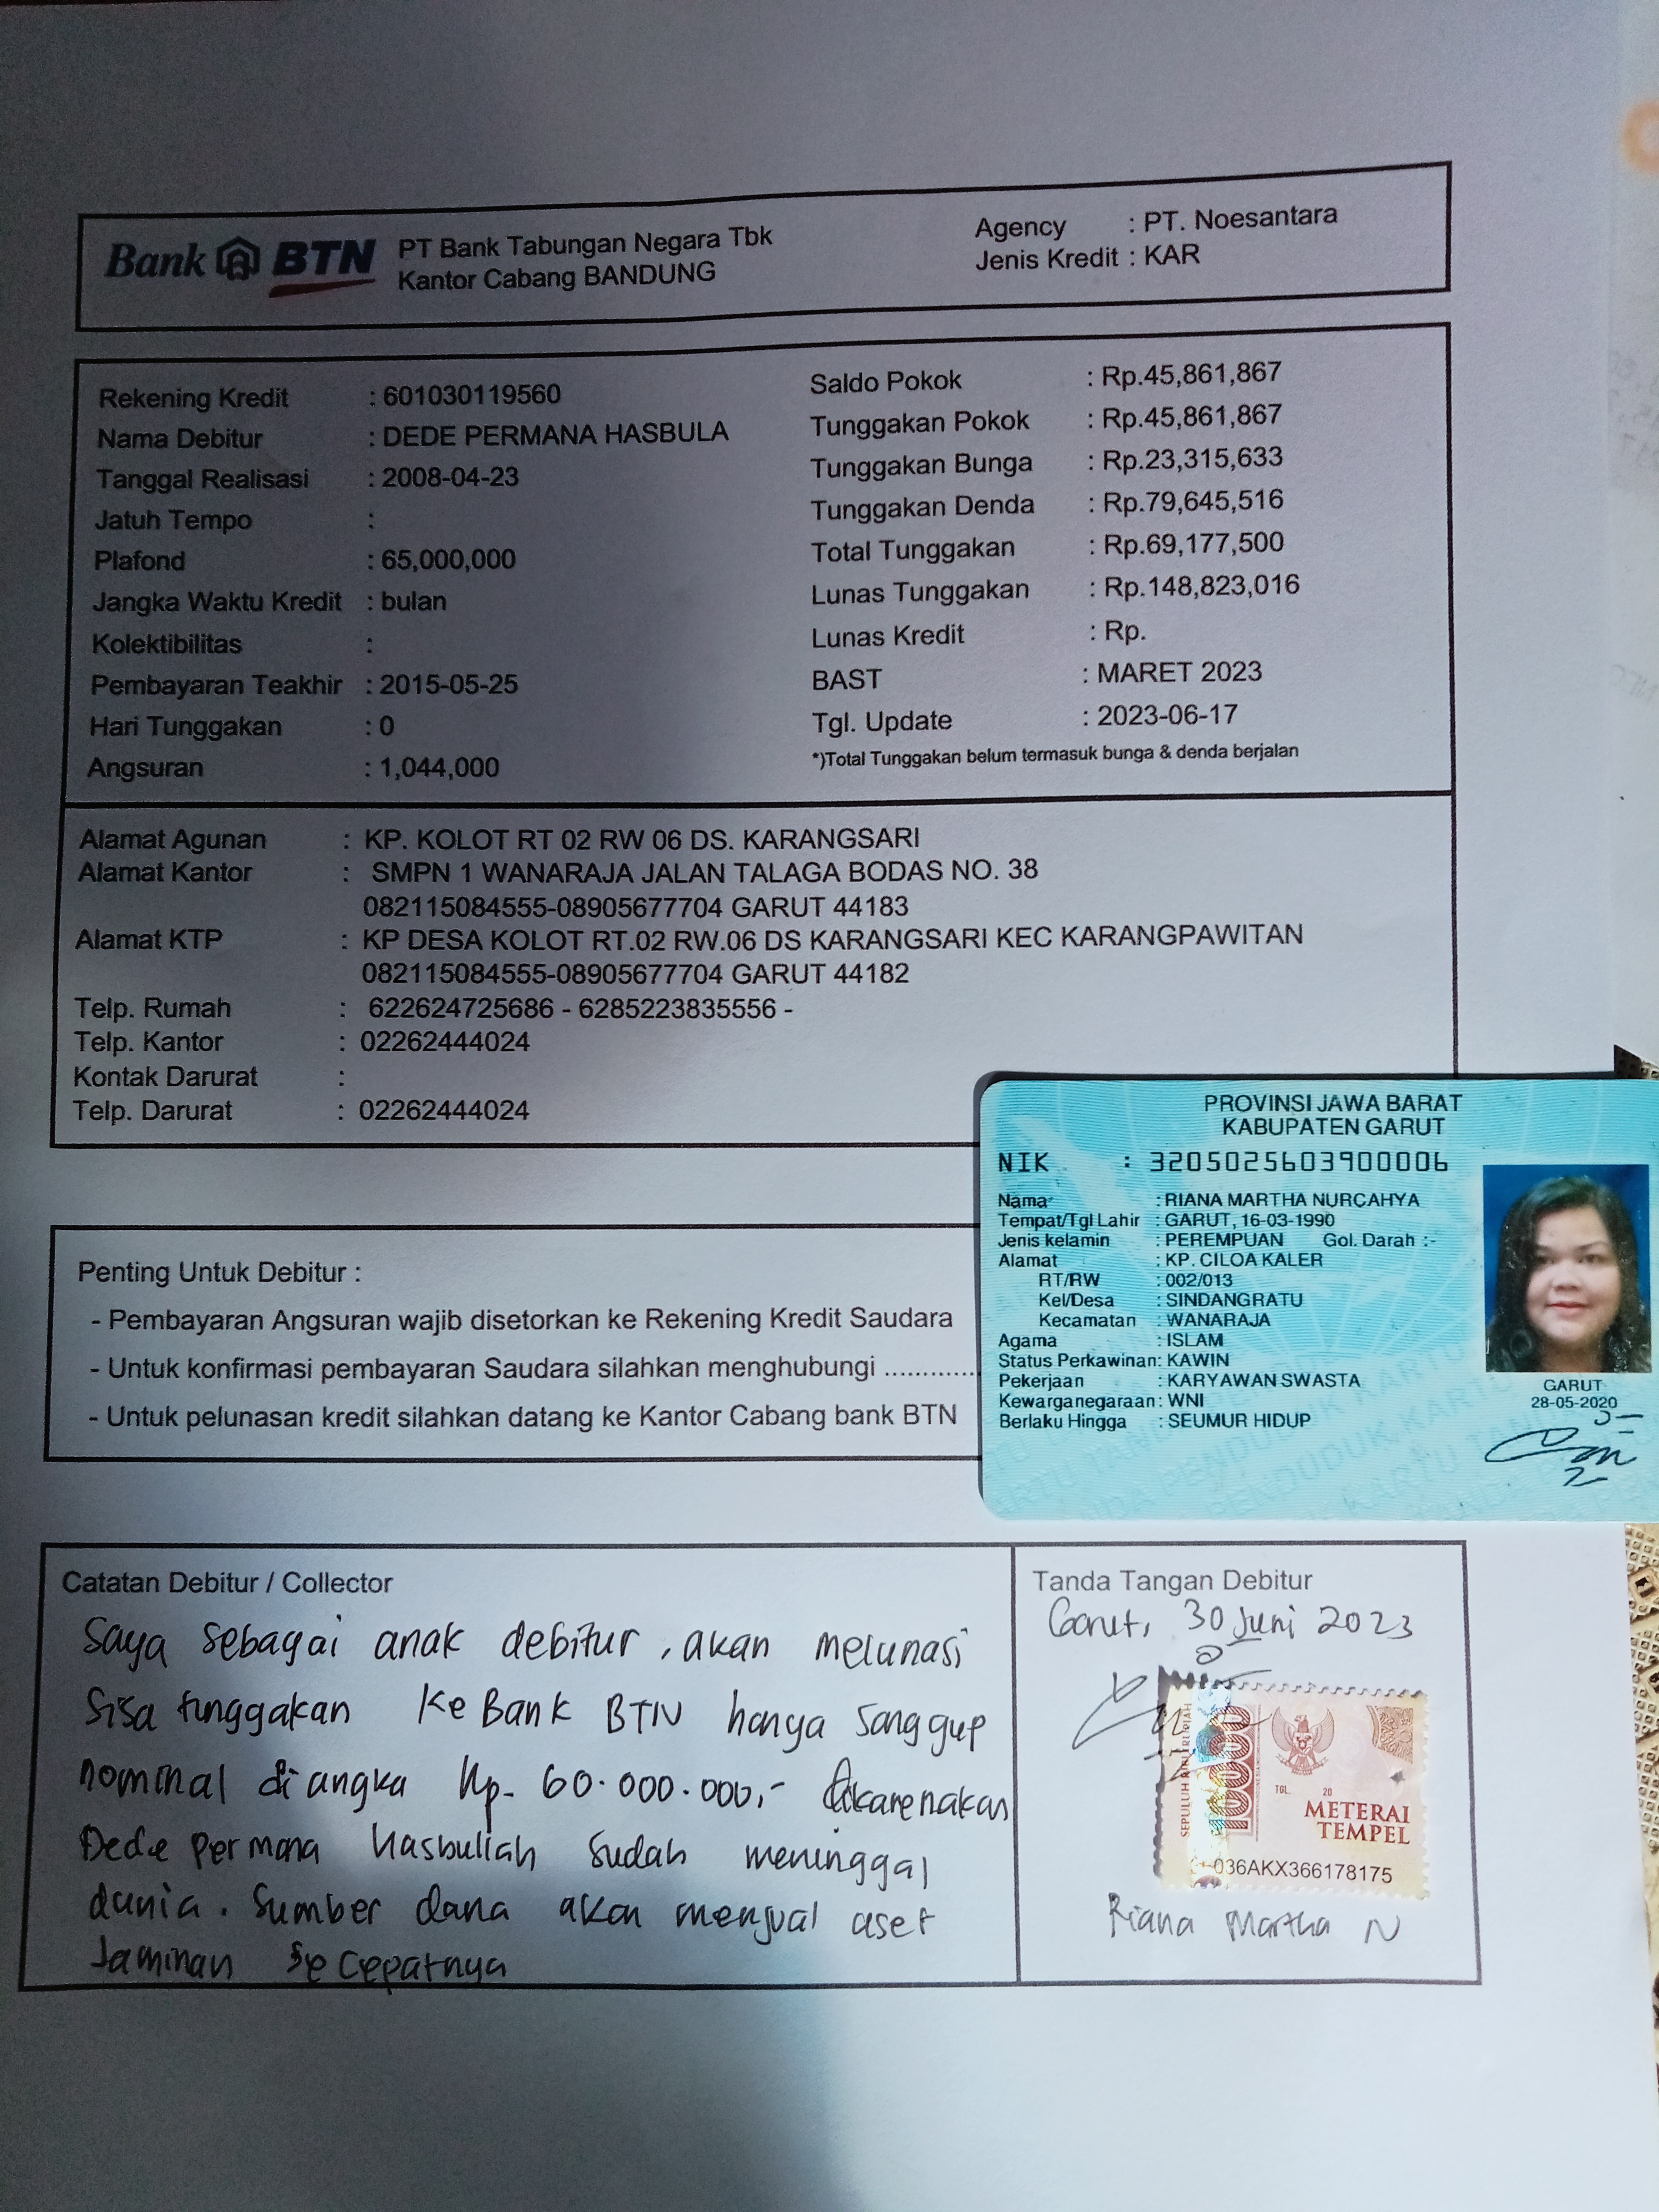 Bank BTN
PT Bank Tabungan Negara Tbk
Kantor Cabang BANDUNG
Agency : PT. Noesantara
Jenis Kredit : KAR
Rekening Kredit : 601030119560
Nama Debitur : DEDE PERMANA HASBULA
Tanggal Realisasi : 2008-04-23
Jatuh Tempo :
Plafond : 65,000,000
Jangka Waktu Kredit : bulan
Kolektibilitas :
Pembayaran Teakhir : 2015-05-25
Hari Tunggakan : 0
Angsuran : 1,044,000
Saldo Pokok : Rp.45,861,867
Tunggakan Pokok : Rp.45,861,867
Tunggakan Bunga : Rp.23,315,633
Tunggakan Denda : Rp.79,645,516
Total Tunggakan : Rp.69,177,500
Lunas Tunggakan : Rp.148,823,016
Lunas Kredit : Rp.
BAST : MARET 2023
Tgl. Update : 2023-06-17
*)Total Tunggakan belum termasuk bunga & denda berjalan
Alamat Agunan : KP. KOLOT RT 02 RW 06 DS. KARANGSARI
Alamat Kantor : SMPN 1 WANARAJA JALAN TALAGA BODAS NO. 38
082115084555-08905677704 GARUT 44183
Alamat KTP : KP DESA KOLOT RT.02 RW.06 DS KARANGSARI KEC KARANGPAWITAN
082115084555-08905677704 GARUT 44182
Telp. Rumah : 622624725686 - 6285223835556 -
Telp. Kantor : 02262444024
Kontak Darurat :
Telp. Darurat : 02262444024
PROVINSI JAWA BARAT
KABUPATEN GARUT
NIK : 3205025603900006
Nama : RIANA MARTHA NURCAHYA
Tempat/Tgl Lahir : GARUT, 16-03-1990
Jenis kelamin : PEREMPUAN Gol. Darah :-
Alamat : KP. CILOA KALER
RT/RW : 002/013
Kel/Desa : SINDANGRATU
Kecamatan : WANARAJA
Agama : ISLAM
Status Perkawinan: KAWIN
Pekerjaan : KARYAWAN SWASTA
Kewarganegaraan: WNI
Berlaku Hingga : SEUMUR HIDUP
GARUT
28-05-2020
Penting Untuk Debitur :
- Pembayaran Angsuran wajib disetorkan ke Rekening Kredit Saudara
- Untuk konfirmasi pembayaran Saudara silahkan menghubungi ..............
- Untuk pelunasan kredit silahkan datang ke Kantor Cabang bank BTN
Catatan Debitur / Collector
Saya sebagai anak debitur, akan melunasi
sisa tunggakan ke Bank BTN hanya sanggup
nominal di angka Rp. 60.000.000,- dikarenakan
Dede Permana Hasbullah sudah meninggal
dunia. Sumber dana akan menjual aset
Jaminan secepatnya
Tanda Tangan Debitur
Garut, 30 Juni 2023
SEPULUH RIBU RUPIAH
10000
TGL. 20
METERAI
TEMPEL
036AKX366178175
Riana Martha N